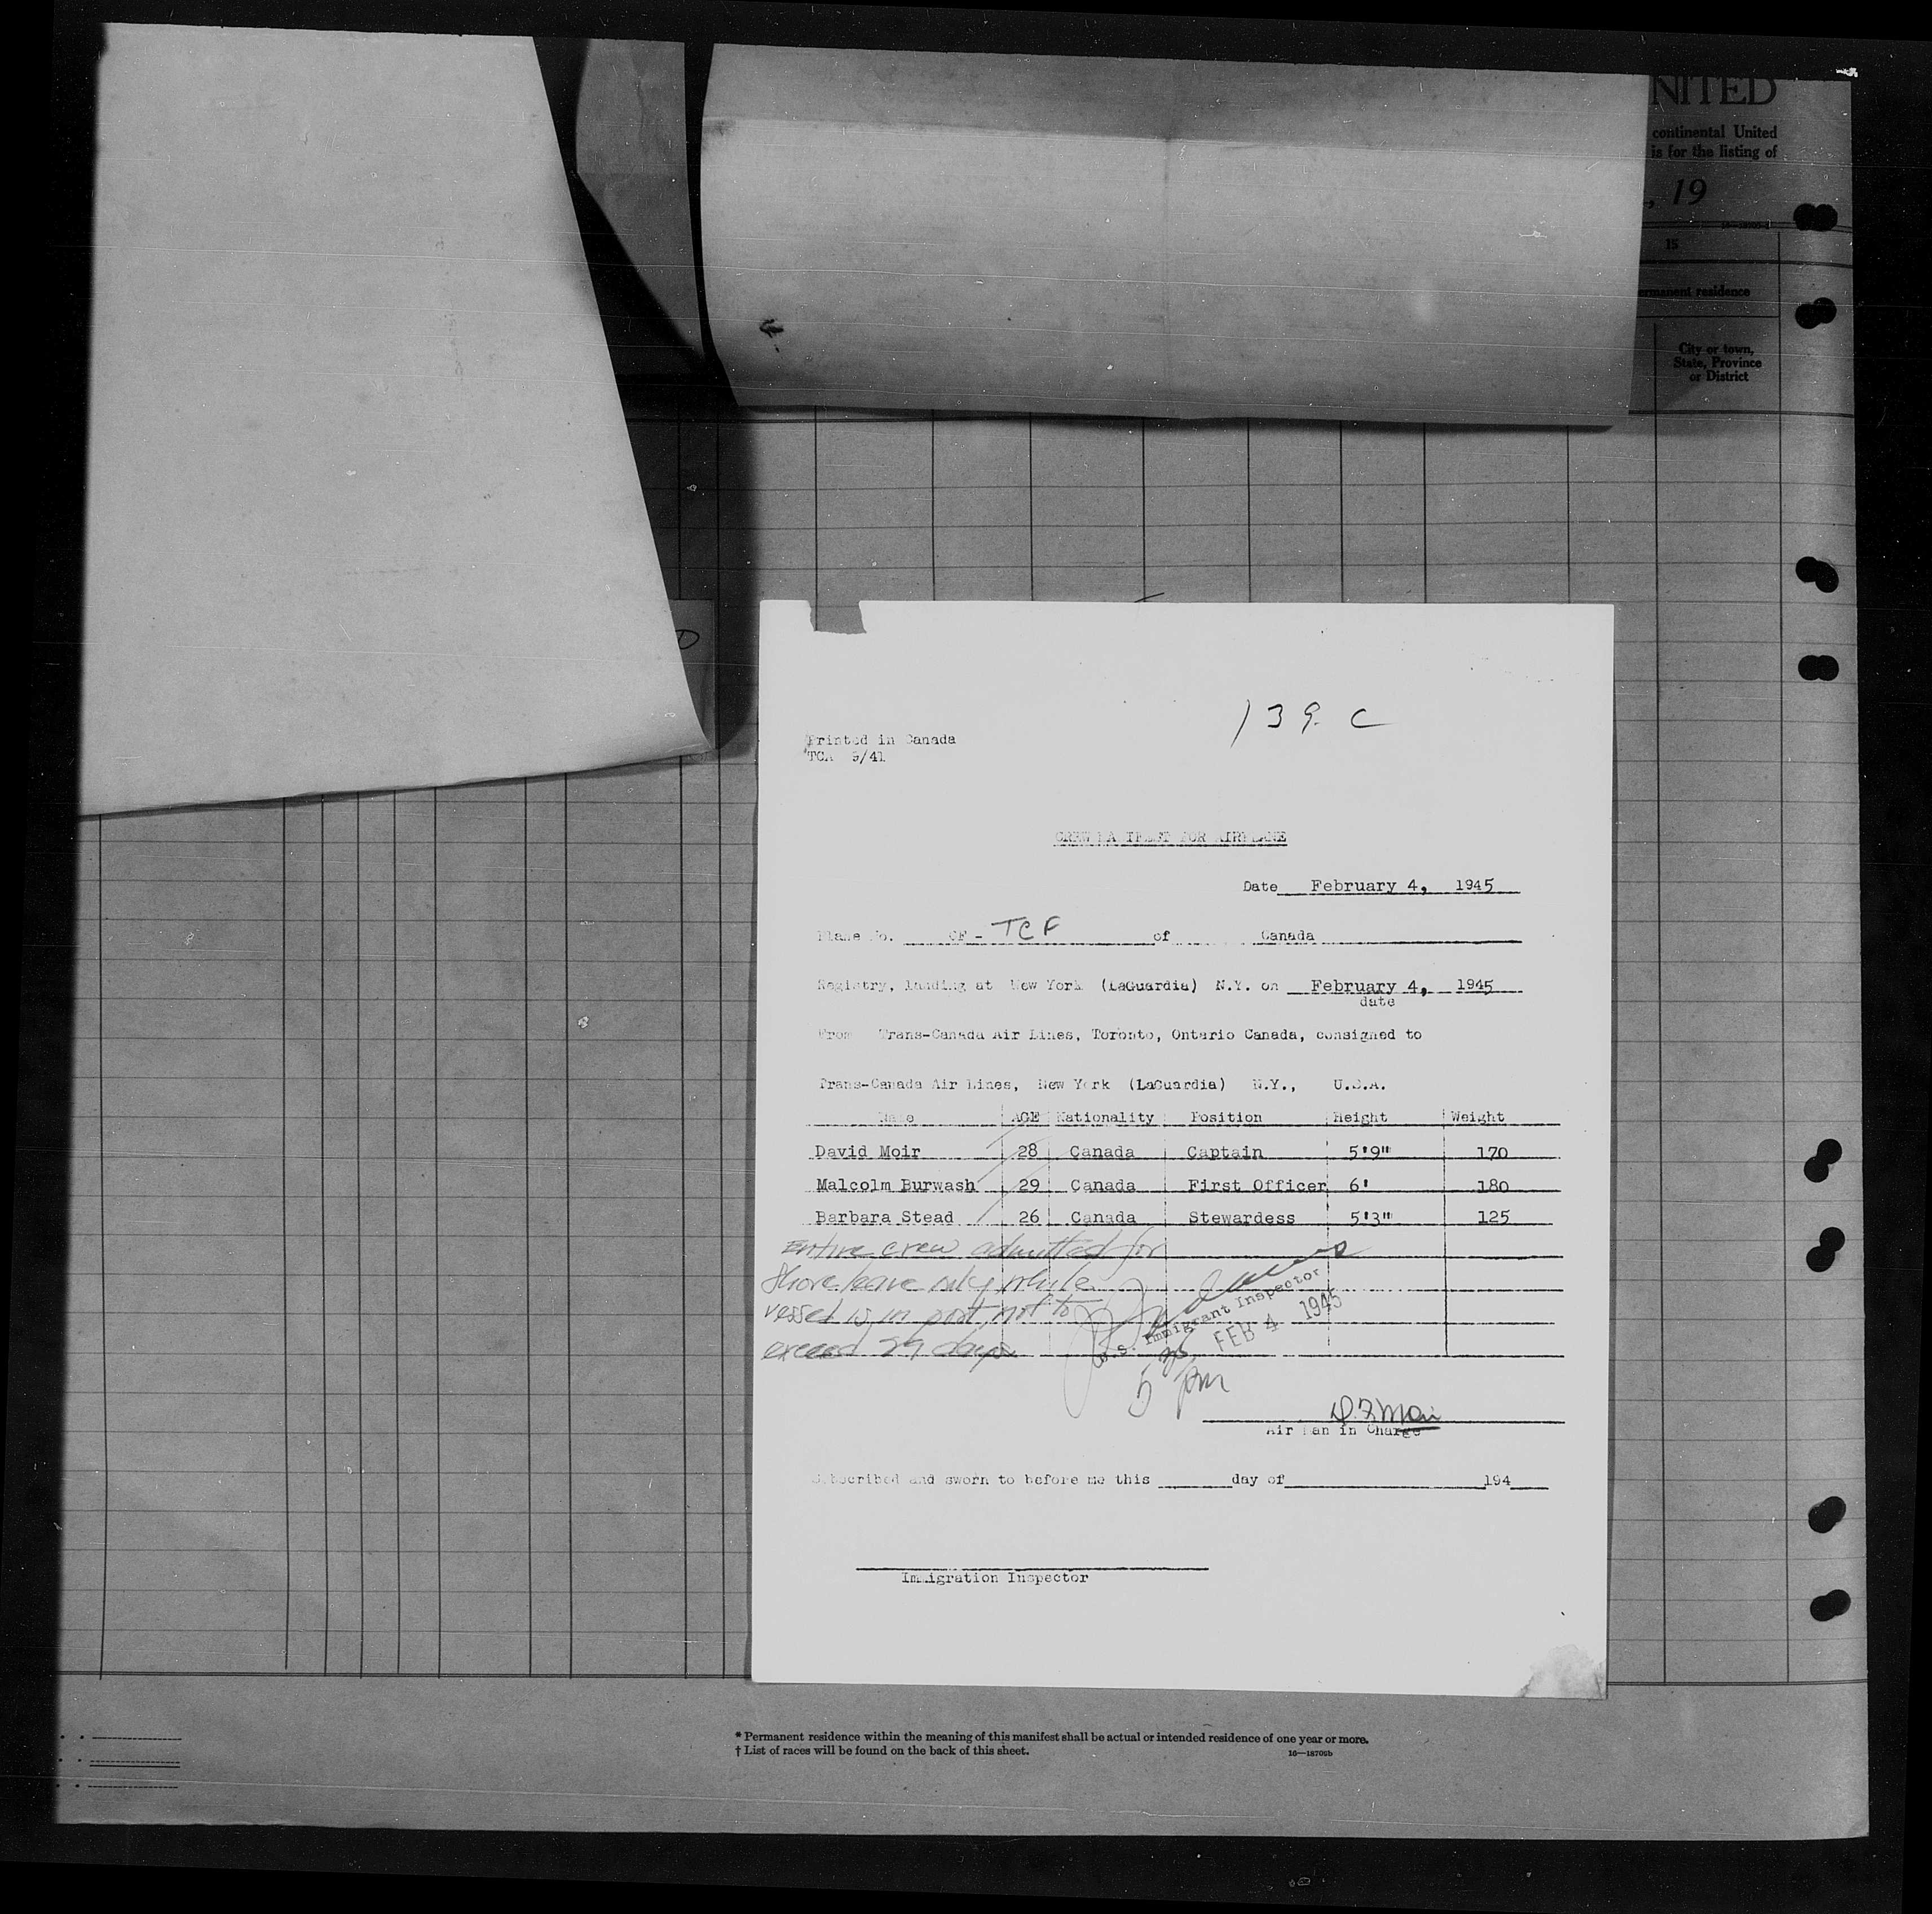 NITED
continental United
is for the listing of
, 19
15
permanent residence
City or town,
State, Province
or District
D
139 C
Printed in Canada
TCA 9/41
CREW MANIFEST FOR AIRPLANE
Date February 4, 1945
Plane No. CF - TCF of Canada
Registry, landing at New York (LaGuardia) N.Y. on February 4, 1945
date
From Trans-Canada Air Lines, Toronto, Ontario Canada, consigned to
Trans-Canada Air Lines, New York (LaGuardia) N.Y., U.S.A.
Name AGE Nationality Position Height Weight
David Moir 28 Canada Captain 5'9" 170
Malcolm Burwash 29 Canada First Officer 6' 180
Barbara Stead 26 Canada Stewardess 5'3" 125
Entire crew admitted for
Shore leave only while
vessel is in port not to
exceed 29 days
U.S. Immigrant Inspector
FEB 4 1945
5 pm
D.F. Moir
Air Man in Charge
Subscribed and sworn to before me this day of 194
Immigration Inspector
* Permanent residence within the meaning of this manifest shall be actual or intended residence of one year or more.
† List of races will be found on the back of this sheet.
16—18709b